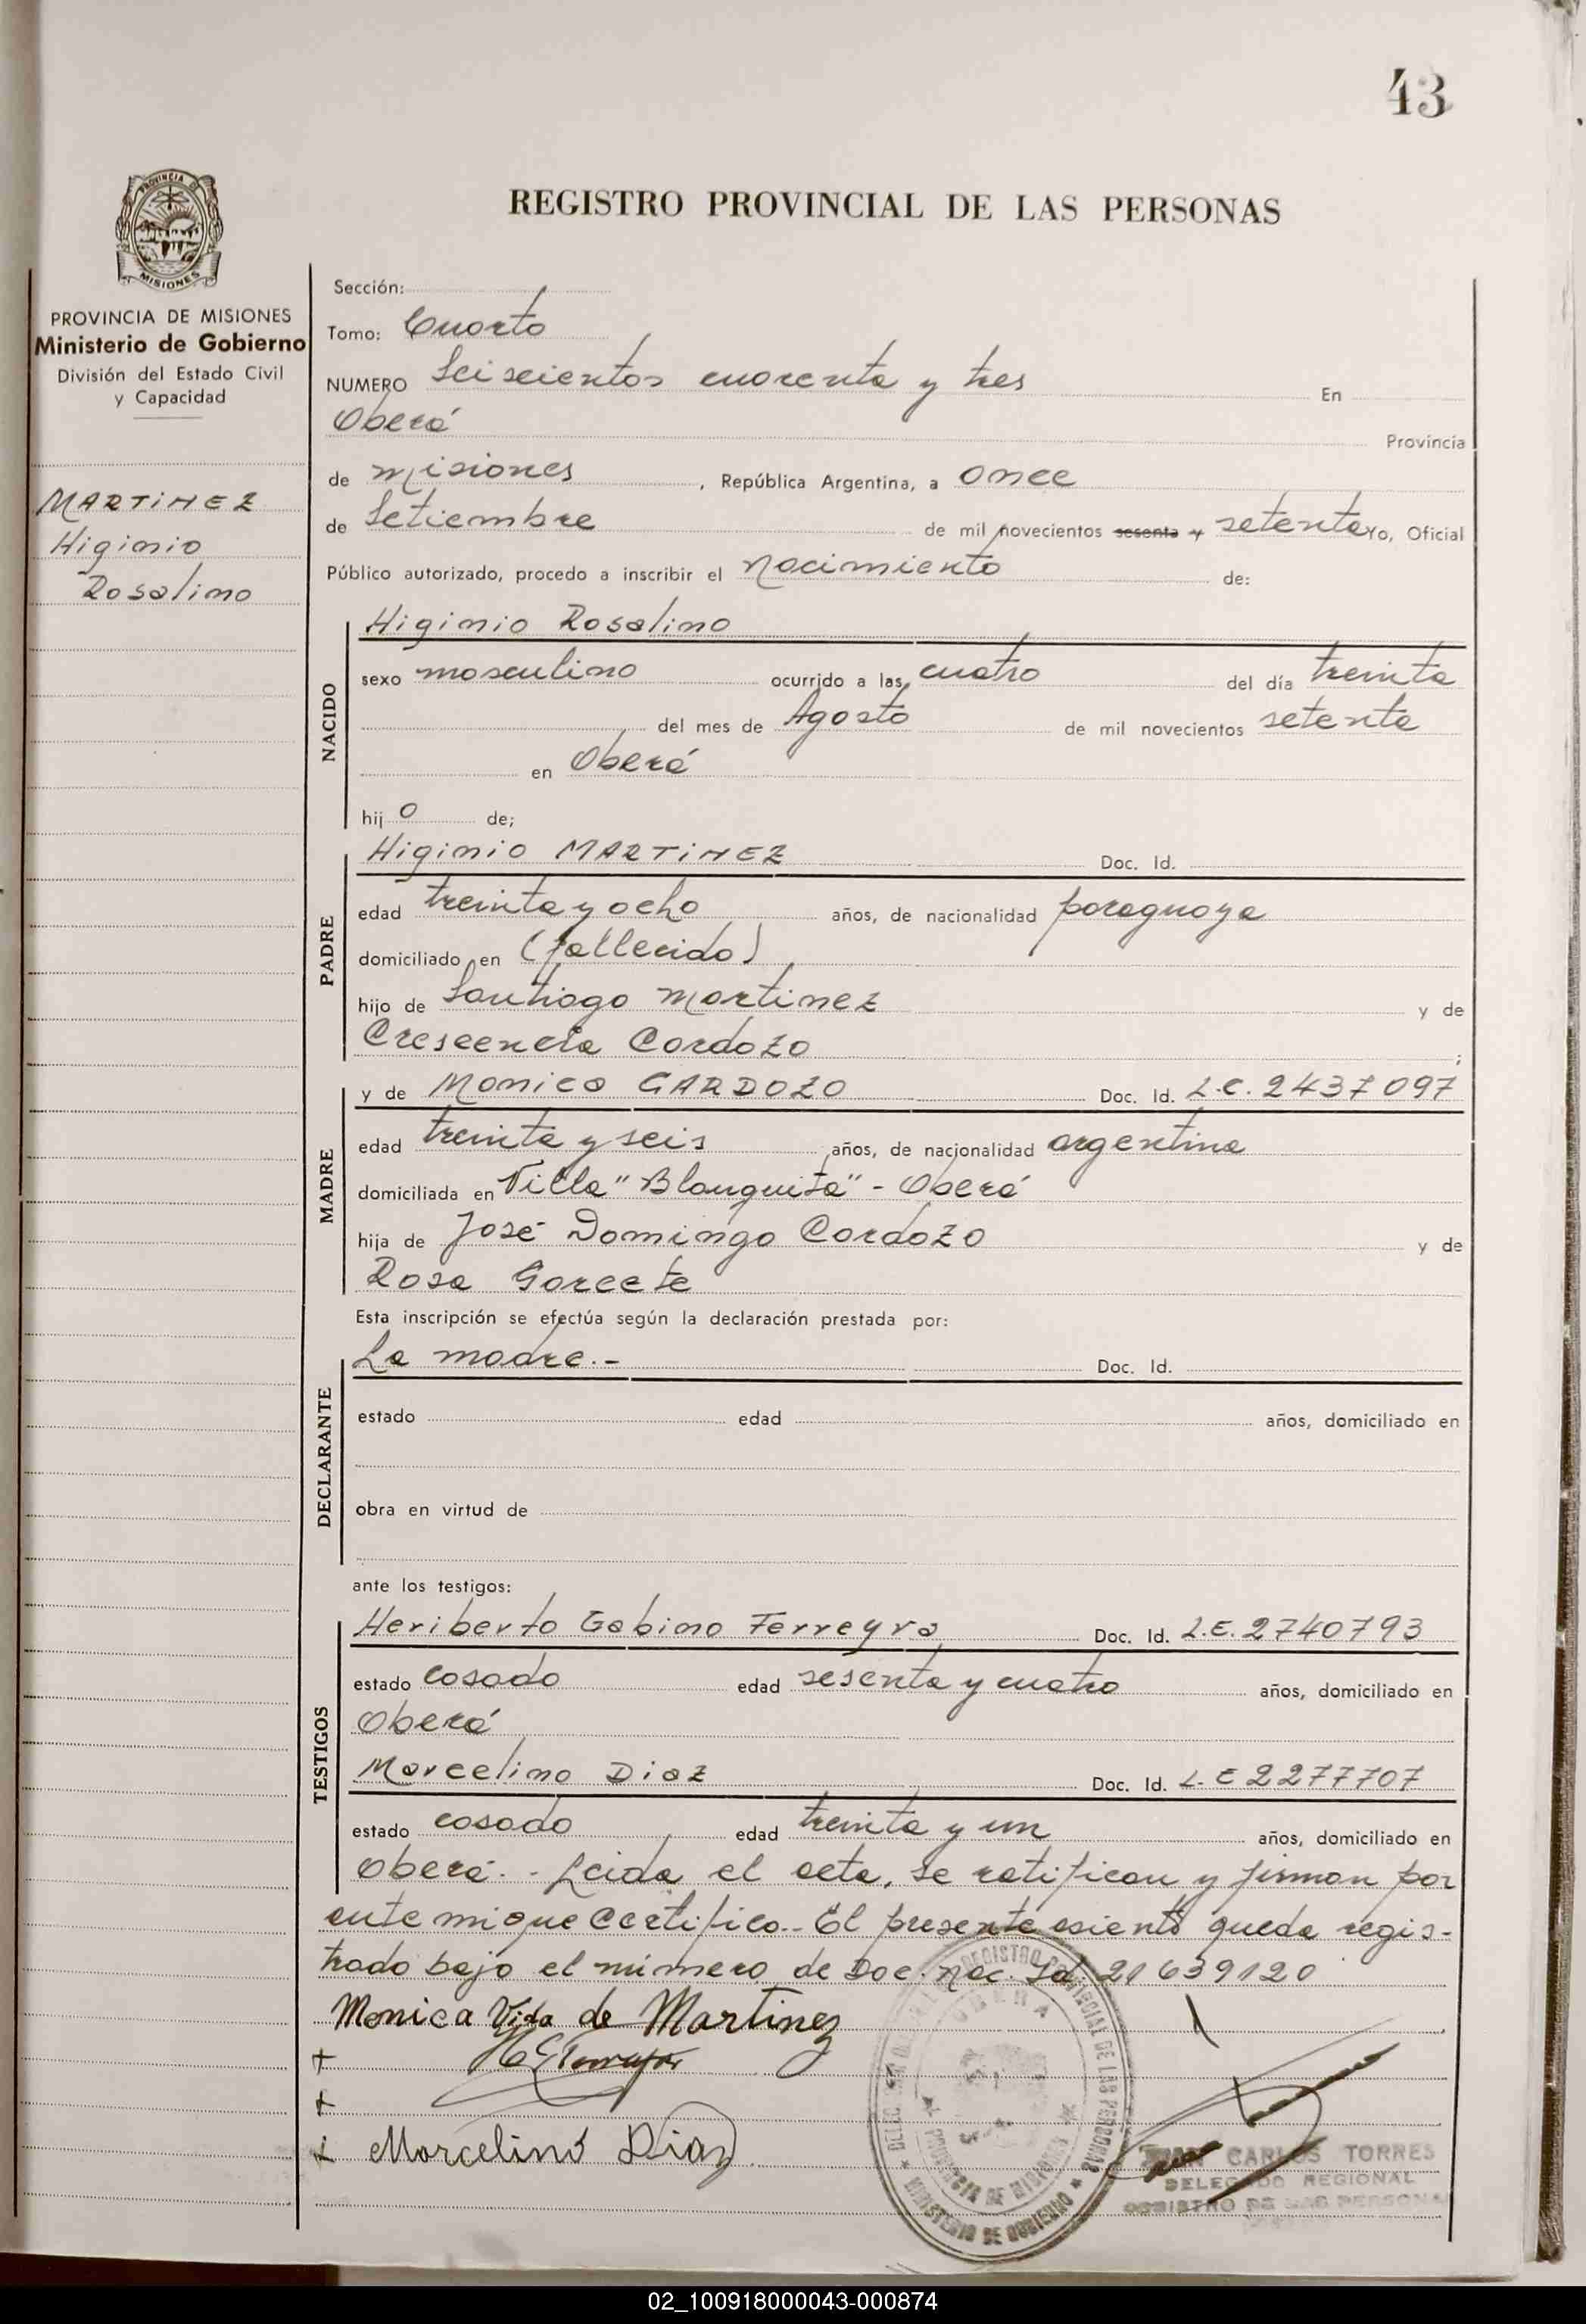 43
PROVINCIA DE MISIONES
REGISTRO PROVINCIAL DE LAS PERSONAS
PROVINCIA DE MISIONES
Ministerio de Gobierno
División del Estado Civil
y Capacidad
MARTINEZ
Higinio
Rosalino
Sección:
Tomo: Cuarto
NUMERO Seiscientos cuarenta y tres En
Oberá Provincia
de Misiones, República Argentina, a once
de Setiembre de mil novecientos sesenta y setenta Yo, Oficial
Público autorizado, procedo a inscribir el nacimiento de:
NACIDO
Higinio Rosalino
sexo masculino ocurrido a las cuatro del día treinta
del mes de Agosto de mil novecientos setenta
en Oberá
hijo de;
PADRE
Higinio MARTINEZ Doc. Id.
edad treinta y ocho años, de nacionalidad paraguaya
domiciliado en (fallecido)
hijo de Santiago Martinez y de
Crescencia Cardozo ;
MADRE
y de Monica CARDOZO Doc. Id. L.C. 2437097
edad treinta y seis años, de nacionalidad argentina
domiciliada en Villa "Blanquita" - Oberá
hija de José Domingo Cardozo y de
Rosa Gorcete
Esta inscripción se efectúa según la declaración prestada por:
DECLARANTE
La madre.- Doc. Id.
estado edad años, domiciliado en
obra en virtud de
ante los testigos:
TESTIGOS
Heriberto Gabino Ferreyra Doc. Id. L.E. 2740793
estado casado edad sesenta y cuatro años, domiciliado en
Oberá
Marcelino Diaz Doc. Id. L.E 2277707
estado casado edad treinta y un años, domiciliado en
Oberá.- Leida el acta, se ratifican y firman por
ante mi que certifico.- El presente asiento queda regis-
trado bajo el número de Doc. Nac. Id. 21639120
Monica Vda de Martinez
+
+
+ Marcelino Diaz
REGISTRO PROVINCIAL DE LAS PERSONAS
OBERA
PROVINCIA DE MISIONES
MINISTERIO DE GOBIERNO
JUAN CARLOS TORRES
DELEGADO REGIONAL
REGISTRO DE LAS PERSONAS
02_100918000043-000874